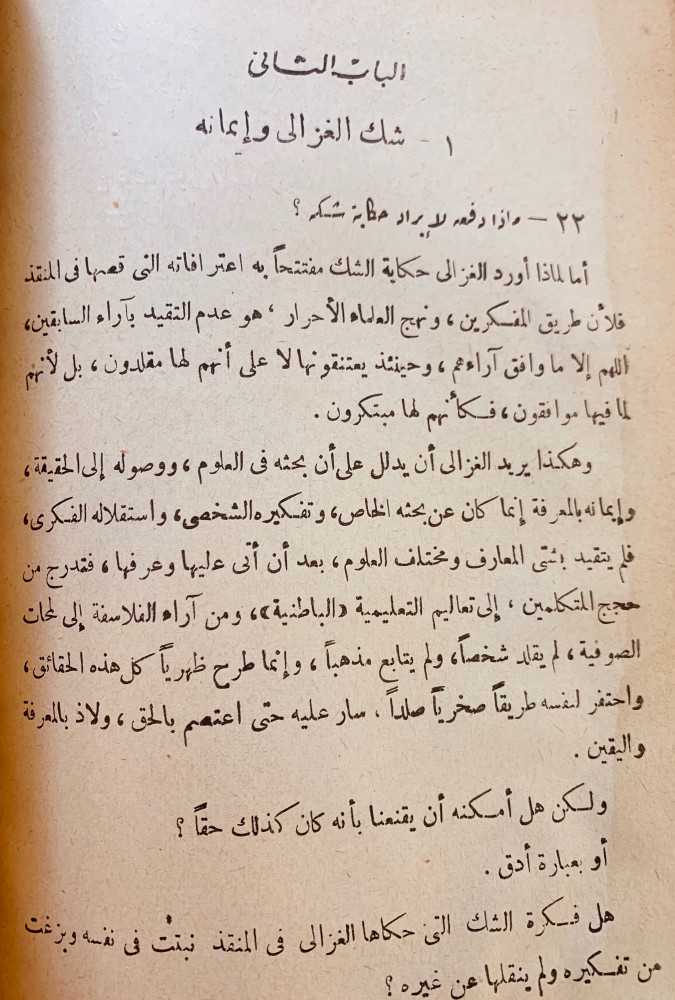 الباب الثاني
١ - شك الغزالى وإيمانه
٢٢ - ماذا دفعه لإيراد حكاية شكه ؟
أما لماذا أورد الغزالى حكاية الشك مفتتحاً به اعترافاته التى قصها فى المنقذ
فلأن طريق المفكرين ، ونهج العلماء الأحرار ، هو عدم التقيد بآراء السابقين ،
اللهم إلا ما وافق آراءهم ، وحينئذ يعتنقونها لا على أنهم لها مقلدون ، بل لأنهم
لما فيها موافقون ، فكأنهم لها مبتكرون .
وهكذا يريد الغزالى أن يدلل على أن بحثه فى العلوم ، ووصوله إلى الحقيقة ،
وإيمانه بالمعرفة إنما كان عن بحثه الخاص ، وتفكيره الشخصى ، واستقلاله الفكرى ،
فلم يتقيد بشتى المعارف ومختلف العلوم ، بعد أن أتى عليها وعرفها ، فتدرج من
حجج المتكلمين ، إلى تعاليم التعليمية «الباطنية» ، ومن آراء الفلاسفة إلى لمحات
الصوفية ، لم يقلد شخصاً ، ولم يتابع مذهباً ، وإنما طرح ظهرياً كل هذه الحقائق ،
واحتفر لنفسه طريقاً صخرياً صلداً ، سار عليه حتى اعتصم بالحق ، ولاذ بالمعرفة
واليقين .
ولكن هل أمكنه أن يقنعنا بأنه كان كذلك حقاً ؟
أو بعبارة أدق .
هل فكرة الشك التى حكاها الغزالى فى المنقذ نبتت فى نفسه وبزغت
من تفكيره ولم ينقلها عن غيره ؟